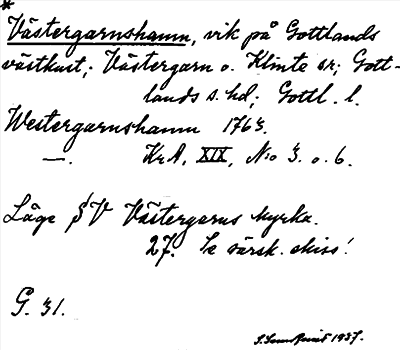 *
Västergarnshamn, vik på Gottlands
västkust; Västergarn o. Klinte sr; Gott-
lands s. hd; Gottl. l.
Westergarnshamn 1763.
—. KrA, XIX, No 3. o. 6.
Läge SV Västergarns kyrka.
27. Se särsk. skiss!
G. 31.
1937.